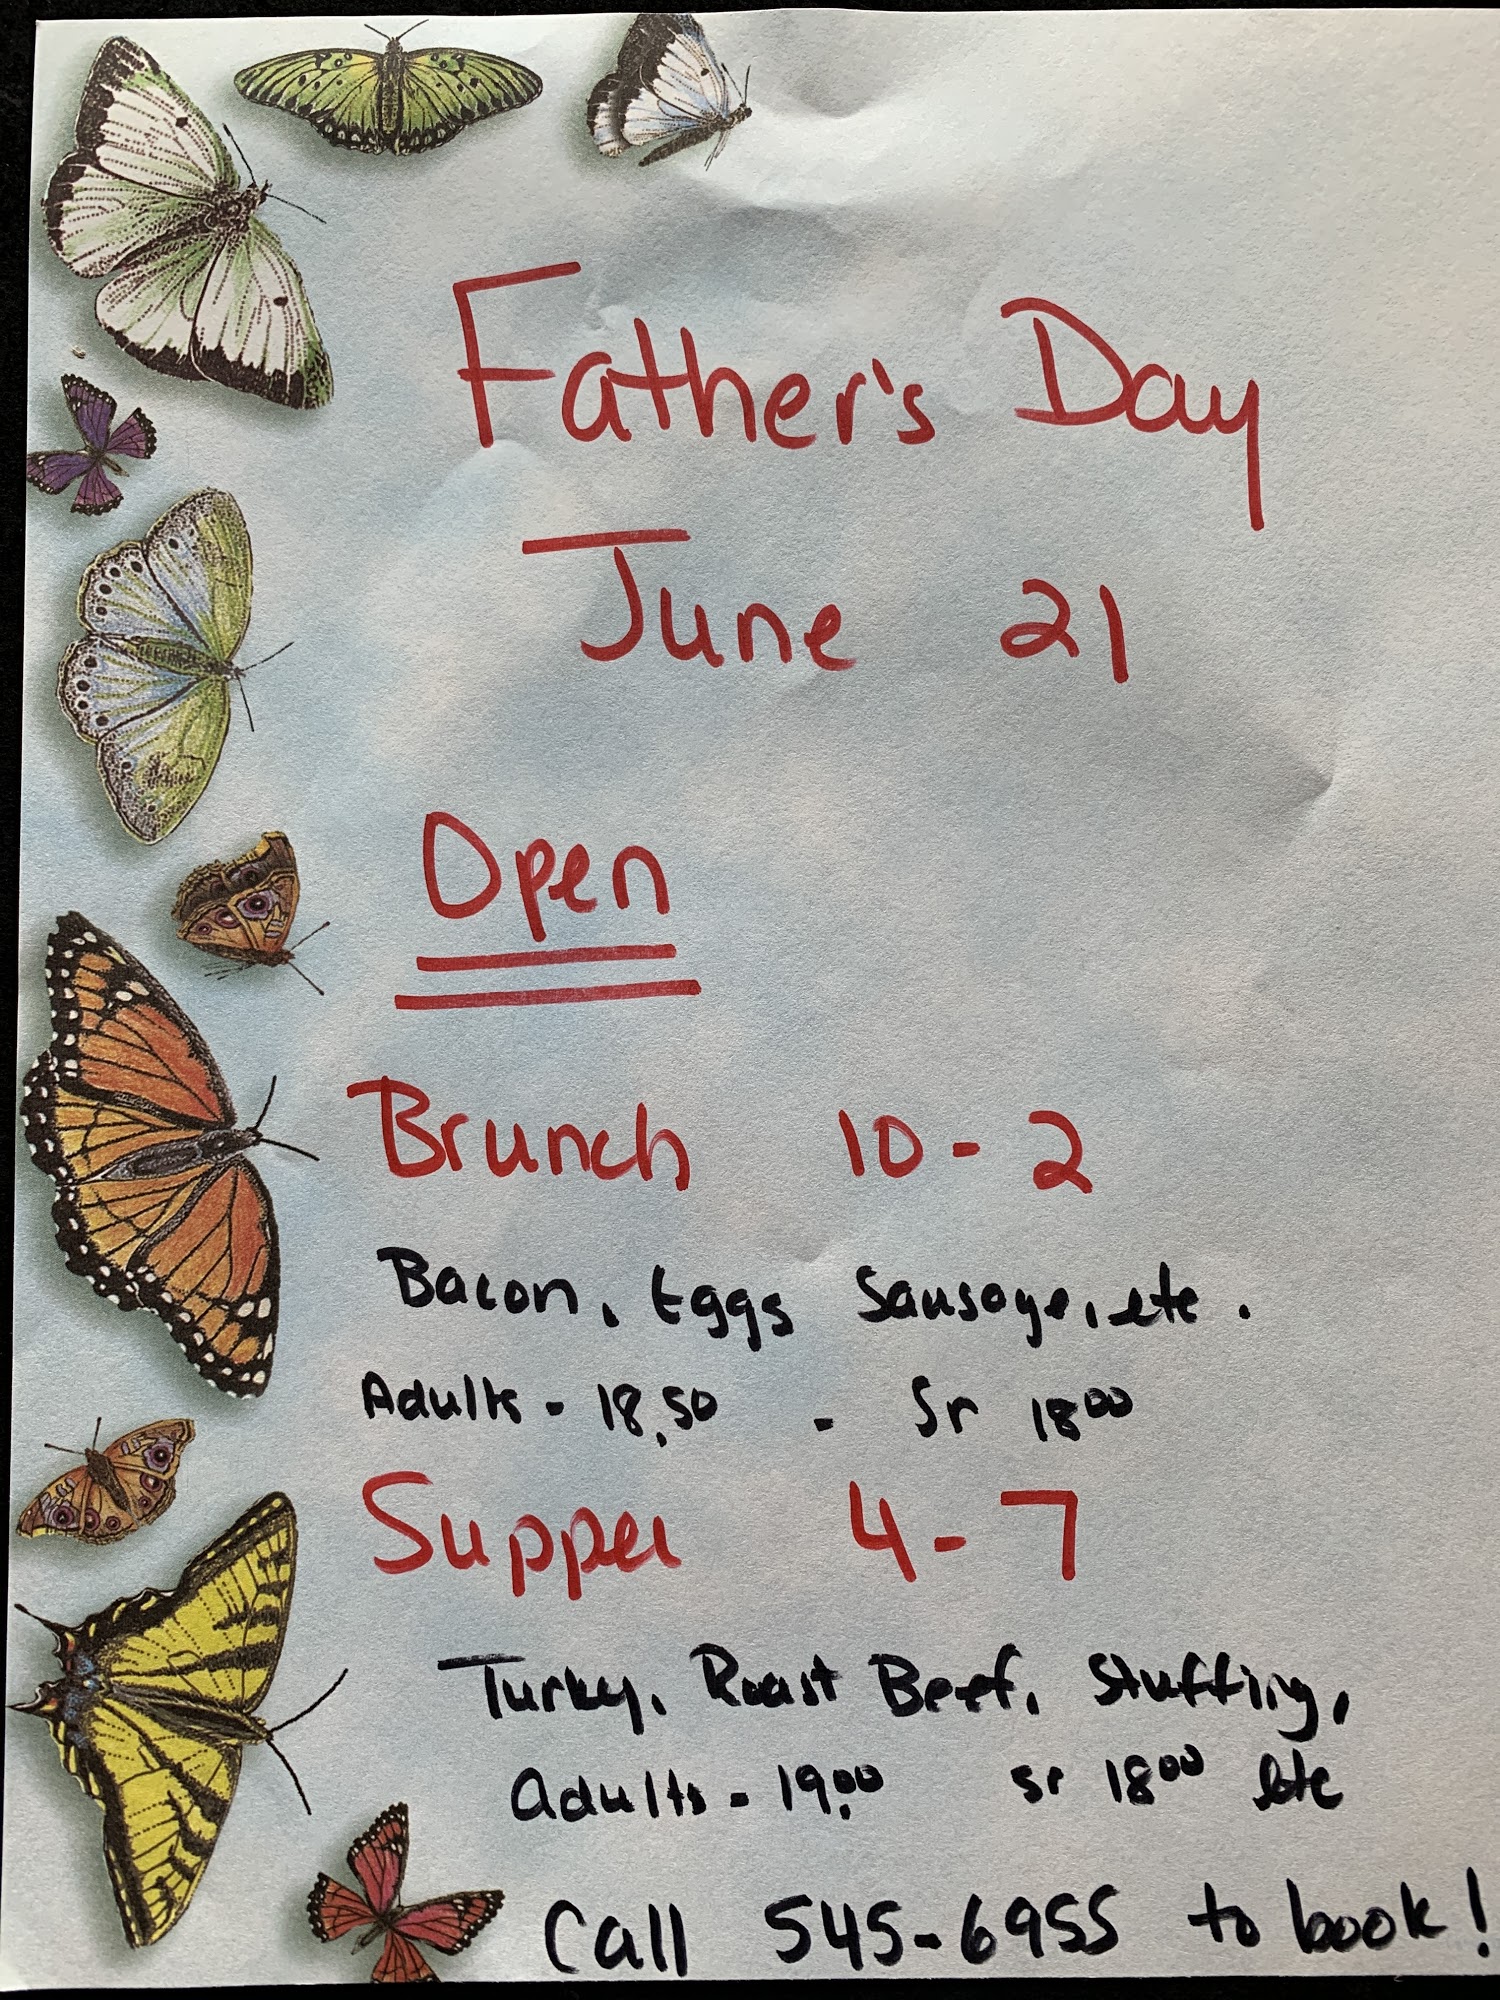 Father's Day
June 21
Open
Brunch 10-2
Bacon, Eggs Sausage, etc.
Adults - 18.50 - Sr 18⁰⁰
Supper 4-7
Turky, Roast Beef, Stuffing,
Adults - 19.⁰⁰ Sr 18⁰⁰ etc
Call 545-6955 to book!